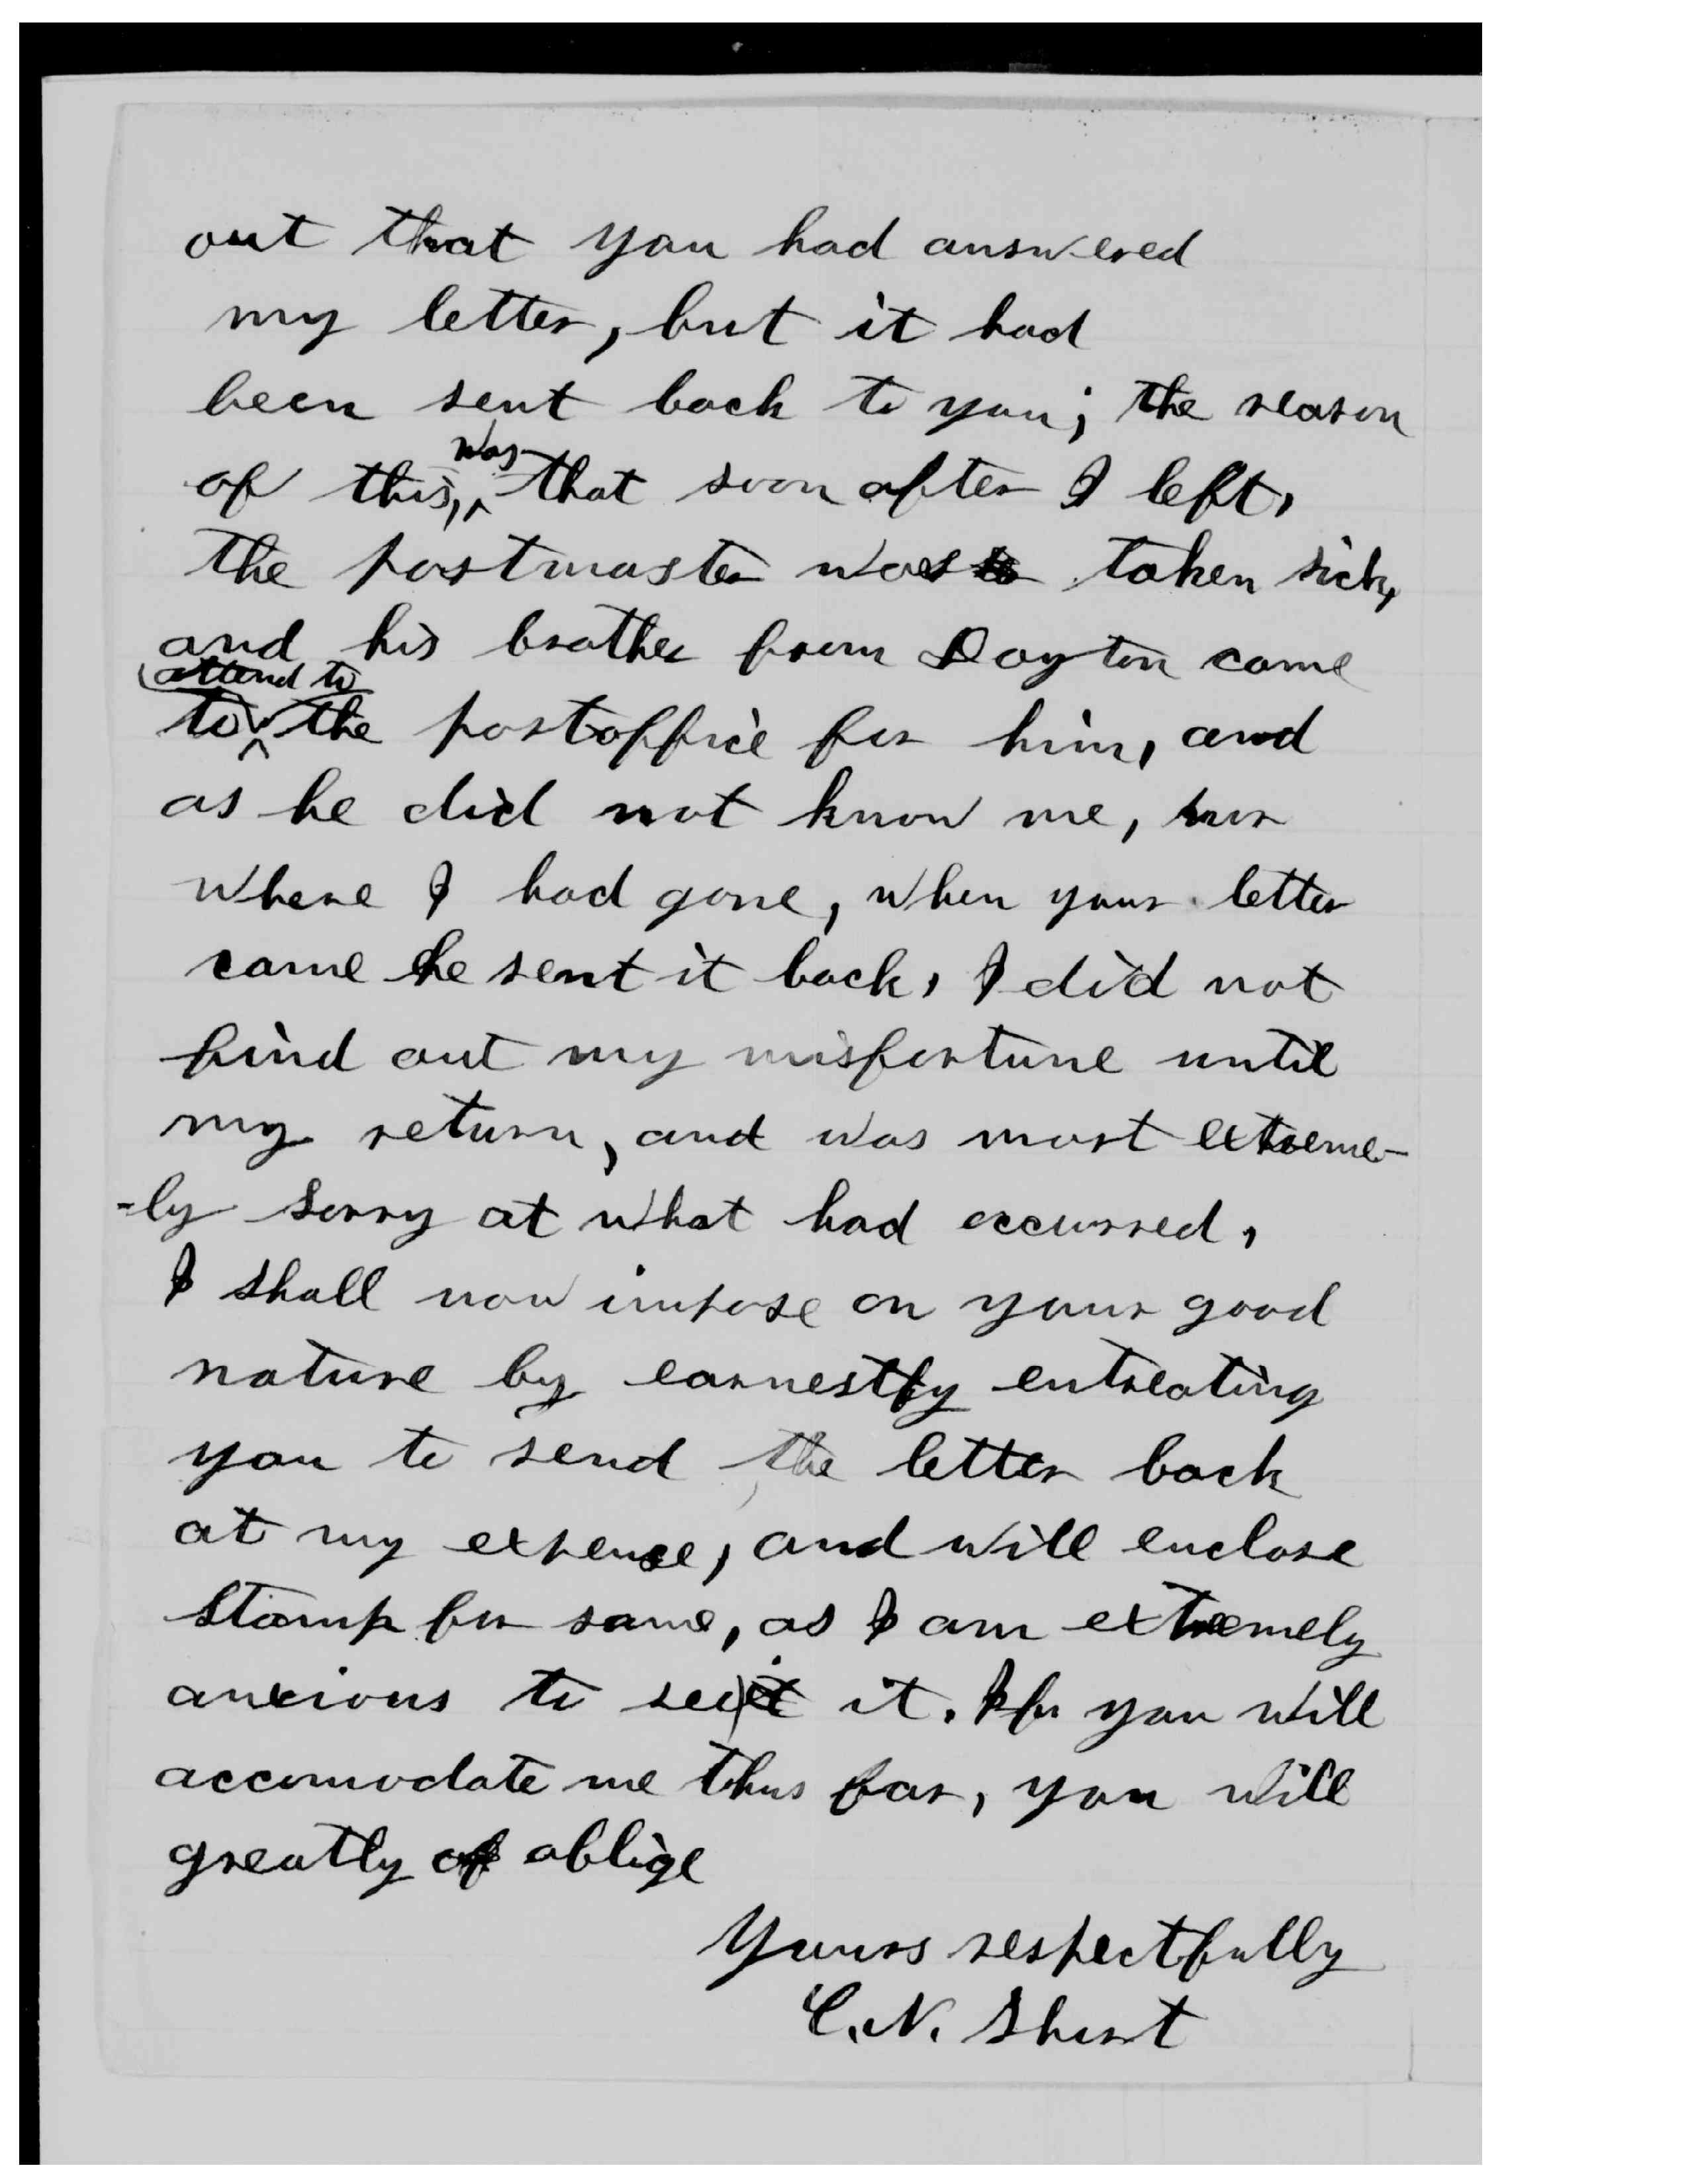 out that you had answered
my letter, but it had
been sent back to you; the reason
of this, was that soon after I left,
the postmaster was taken sick,
and his brother from Dayton came
to attend to the postoffice for him, and
as he did not know me, nor
where I had gone, when your letter
came he sent it back, I did not
find out my misfortune until
my return, and was most extreme-
-ly sorry at what had occurred,
I shall now impose on your good
nature by earnestly entreating
you to send the letter back
at my expense, and will enclose
stamp for same, as I am extremely
anxious to see it. If you will
accomodate me thus far, you will
greatly oblige
Yours respectfully
C. N. Short